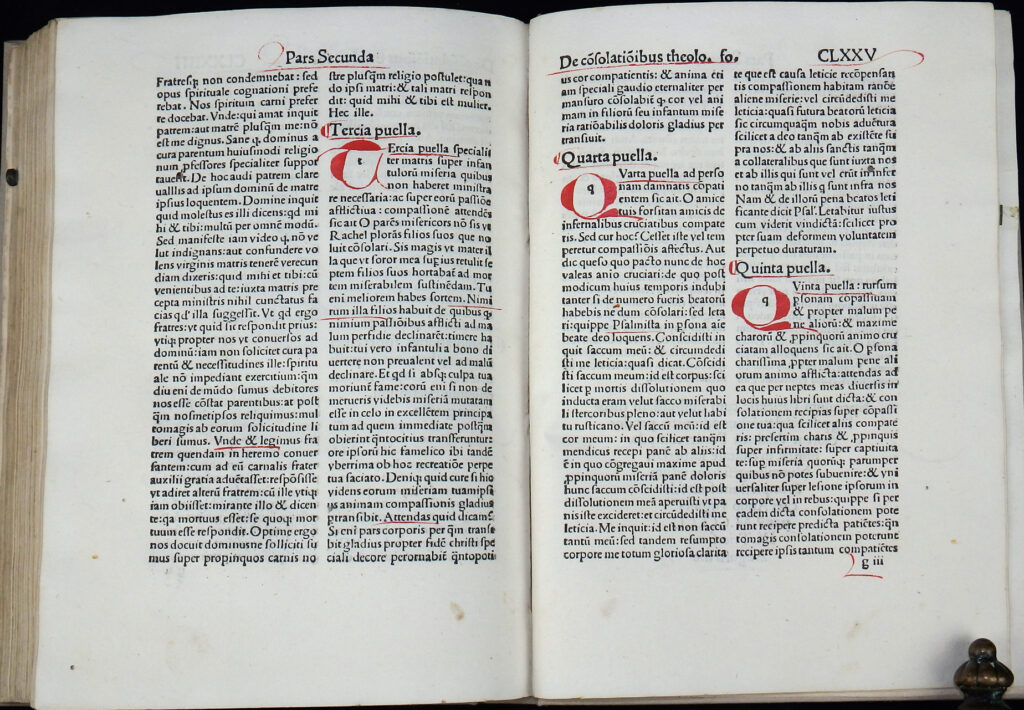 Pars Secunda
Fratresq; non condemnebat: sed
opus spirituale cognationi prefe
rebat. Nos spiritum carni prefer
re docebat. Vnde: qui amat inquit
patrem: aut matrē plusq̄m me: nō
est me dignus. Sane q. dominus a
cura parentum huiusmodi religio
num p̄fessores specialiter suppor
tauerit. De hoc audi patrem clare
uallis ad ipsum dominū de matre
ipsius loquentem. Domine inquit
quid molestus es illi dicens: qd mi
hi & tibi: multū per omnē modū.
Sed manifeste iam video q. nō ve
lut indignans: aut confundere vo
lens virginis matris tenerē verecun
diam dixeris: quid mihi et tibi: cū
venientibus ad te: iuxta matris pre
cepta ministris nihil cunctatus fa
cias qd' illa suggessit. Vt qd ergo
fratres: vt quid sic respondit prius:
vtiq; propter nos vt conuersos ad
dominū: iam non solicitet cura pa
rentū & necessitudines ille: spiritu
ale nō impediant exercitium: q̄m
diu eni de mūdo sumus debitores
nos esse cōstat parentibus: at post
q̄m nosmetipsos reliquimus: mul
tomagis ab eorum solicitudine li
beri sumus. Vnde & legimus fra
trem quendam in heremo conuer
santem: cum ad eū carnalis frater
auxilii gratia aduētasset: respōsisse
yt adiret alterū fratrem: cū ille vtiq;
iam obiisset: mirante illo & dicen
te: qa mortuus esset: se quoq; mor
tuum esse respondit. Optime ergo
nos docuit dominus ne solliciti su
mus super propinquos carnis no
stre plusq̄m religio postulet: quan
do ipsi matri: & tali matri respon
dit: quid mihi & tibi est mulier.
Hec ille.
Tercia puella.
t
Ercia puella speciali
ter matris super infan
tulorū miseria quibus
non haberet ministra
re necessaria: ac super eorū passiōe
afflictiua: compassionē attendēs
sic ait O parēs misericors nō sis vt
Rachel plorās filios suos que no
luit cōsolari. Sis magis vt mater il
la que vt soror mea sup̄ius retulit se
ptem filios suos hortabat ad mor
tem miserabilem sustinēdam. Tu
eni meliorem habes sortem. Nimi
rum illa filios habuit de quibus q.
nimium passiōibus afflicti ad ma
lum perfidie declinarēt: timere ha
buit: tui vero infantuli a bono di
uertere non preualent vel ad malū
declinare. Et qd si absq; culpa tua
moriunt̄ fame: eorū eni si non de
merueris videbis miseriā mutatam
esse in celo in excellētem principa
tum ad quem immediate postq̄m
obierint q̄ntocitius transferuntur:
ore ipsorū hic famelico ibi tandē
vberrima ob hoc recreatiōe perpe
tua saciato. Deniq; quid cure si hio
videns eorum miseriam tuamipsi
us animam compassionis gladius
p̄transibit. Attendas quid dicam:
Si eni pars corporis per q̄m transe
bit gladius propter fidē christi spe
ciali decore perornabit̄ q̄ntopoti
De cōsolatiōibus theolo. fo. CLXXV
us cor compatientis: & anima eti
am speciali gaudio eternaliter per
mansuro cōsolabit̄ q. cor vel ani
mam in filiorū seu infantum mise
ria ratiōabilis doloris gladius per
transiuit.
Quarta puella.
q
Varta puella ad perso
nam damnatis copati
entem sic ait. O amice
tuis forsitan amicis de
infernalibus cruciatibus compate
ris. Sed cur hoc? Cesset iste vel tem
peretur compassiōis affectus. Aut
dic queso quo pacto nunc de hoc
valeas anio cruciari: de quo post
modicum huius temporis indubi
tanter si de numero fueris beatorū
habebis nedum cōsolari: sed leta
ri: quippe Psalmista in psona aie
beate deo loquens. Conscidisti in
quit saccum meū: & circumdedi
sti me leticia: quasi dicat. Cōscidi
sti saccum meum: id est corpus: sci
licet p mortis dissolutionem quo
inducta eram velut sacco miserabi
li stercoribus pleno: aut velut habi
tu rusticano. Vel saccū meū: id est
cor meum: in quo scilicet tanq̄m
mendicus recepi panē ab aliis: id
ē in quo cōgregaui maxime apud
ppinquorū miseriā panē doloris
hunc saccum cōscidisti: id est post
dissolutionem meā aperuisti vt pa
nis iste excideret: et circūdedisti me
leticia. Me inquit: id est non saccū
tantū meū: sed tandem resumpto
corpore me totum gloriosa clarita
te que est causa leticie recōpensan
tis compassionem habitam ratiōe
aliene miserie: vel circūdedisti me
leticia: quasi futura beatorū leticia
sic circumquaq̄m nobis aduētura
scilicet a deo tanq̄m ab existēte su
pra nos: & ab aliis sanctis tanq̄m
a collateralibus que sunt iuxta nos
et ab illis qui sunt vel erūt in infer
no tanq̄m ab illis q sunt infra nos
Nam & de illorū pena beatos leti
ficante dicit Psal'. Letabitur iustus
cum viderit vindictā: scilicet pro
pter suam deformem voluntatem
perpetuo duraturam.
Quinta puella.
q
Vinta puella: rursum
psonam copassiuam
& propter malum pe
ne aliorū: & maxime
charorū & ppinquorū animo cru
ciatam alloquens sic ait. O psona
charissima, ppter malum pene ali
orum animo afflicta: attendas ad
ea que per neptes meas diuersis in
locis huius libri sunt dicta: & con
solationem recipias super cōpassi
one tua: qua scilicet aliis compate
ris: presertim charis & ppinquis
super infirmitate: super captiuita
te: sup miseria quorūq; parumper
quibus nō potes subuenire: & vni
uersaliter super lesione ipsorum in
corpore vel in rebus: quippe si per
eadem dicta consolationem pote
runt recipere predicta patiētes: q̄n
tomagis consolationem poterunt
recipere ipsis tantum compatiētes
g iii